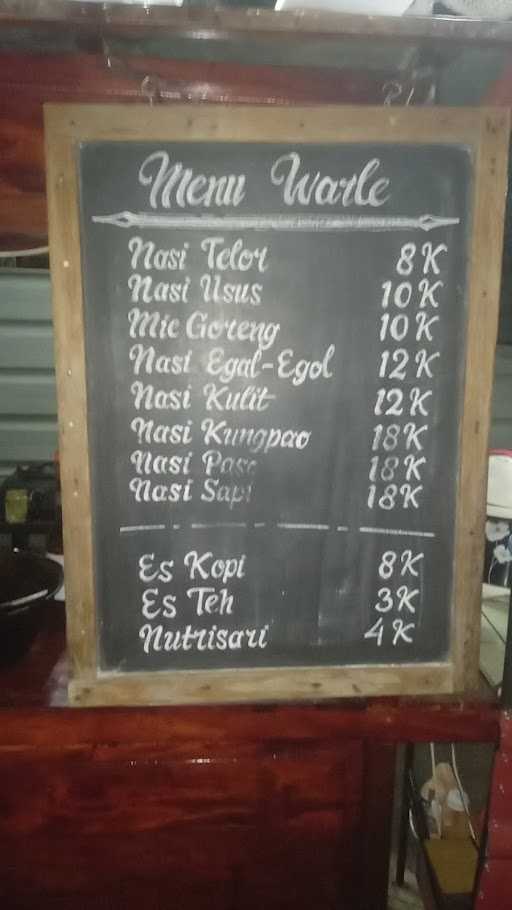 Menu Warle
Nasi Telor 8K
Nasi Usus 10K
Mie Goreng 10K
Nasi Egal-Egol 12K
Nasi Kulit 12K
Nasi Kungpao 18K
Nasi 18K
Nasi Sapi 18K
Es Kopi 8K
Es Teh 3K
Nutrisari 4K